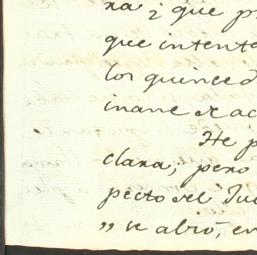 xa ¿ que p
que intent
los quince d
inane se ac
He p
clara; pero
pecto del Ju
„ se abró, en